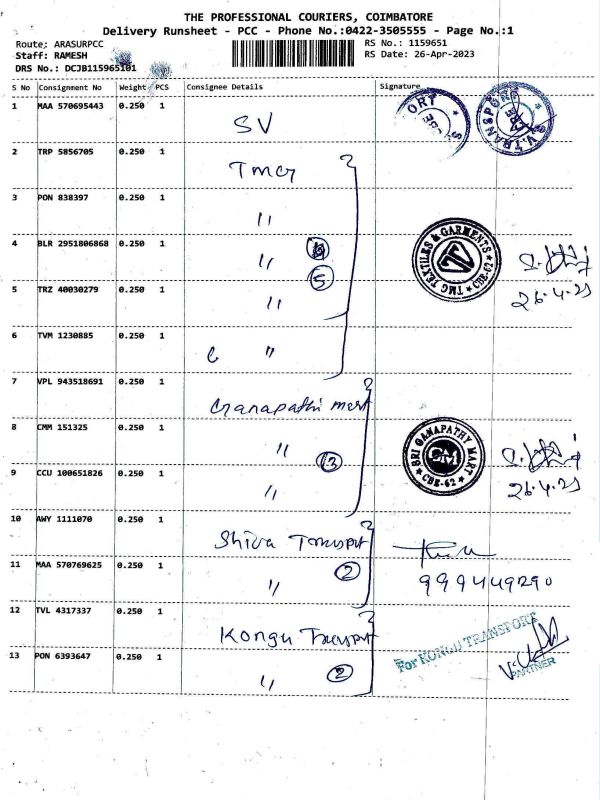 THE PROFESSIONAL COURIERS, COIMBATORE
Delivery Runsheet - PCC - Phone No.:0422-3505555 - Page No.:1
Route; ARASURPCC
RS No.: 1159651
Staff: RAMESH
RS Date: 26-Apr-2023
DRS No.: DCJB115965101
S No Consignment No Weight PCS Consignee Details Signature
1 MAA 570695443 0.250 1 SV
2 TRP 5856705 0.250 1 TMG
3 PON 838397 0.250 1 "
4 BLR 2951806868 0.250 1 "
5
TMG TEXTILES & GARMENTS
CBE-62
5 TRZ 40030279 0.250 1 "
26.4.23
6 TVM 1230885 0.250 1 "
7 VPL 943518691 0.250 1 Ganapathi mart
8 CMM 151325 0.250 1 "
SRI GANAPATHY MART
GM
CBE-62
9 CCU 100651826 0.250 1 "
26.4.23
10 AWY 1111070 0.250 1 Shiva
11 MAA 570769625 0.250 1 " 2
999449290
12 TVL 4317337 0.250 1 Kongu
For KONGU TRANSPORT
13 PON 6393647 0.250 1 " 2
PARTNER